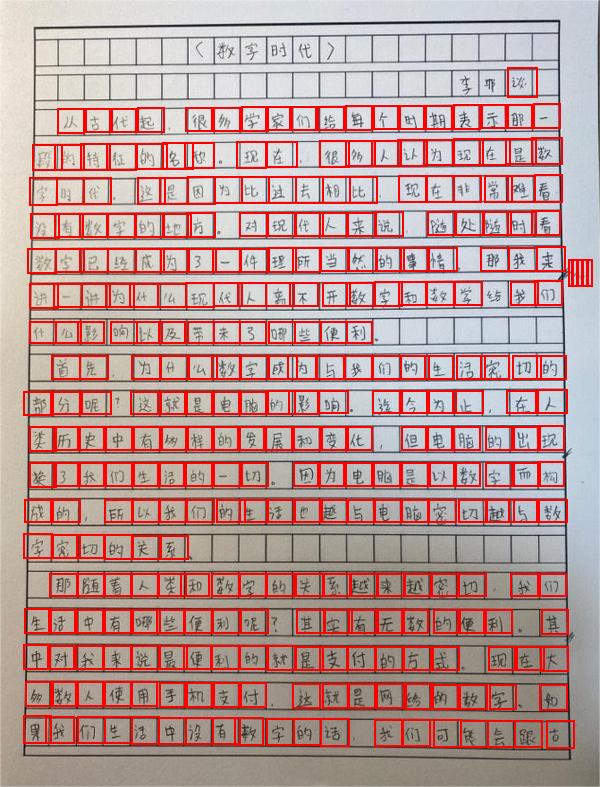 《数字时代》
李菲谈
从古代起，很多学家们给每个时期表示那一
段的特征的名称。现在，很多人认为现在是数
字时代。这是因为比过去相比，现在非常难看
没有数字的地方。对现代人来说，随处随时看
数字已经成为了一件理所当然的事情。那我来
讲一讲为什么现代人离不开数字和数学给我们
什么影响以及带来了哪些便利。
首先，为什么数字成为与我们的生活密切的
部分呢？这就是电脑的影响。迄今为止，在人
类历史中有多样的发展和变化，但电脑的出现
换了我们生活的一切。因为电脑是以数字而构
成的，所以我们的生活也越与电脑密切越与数
字密切的关系。
那随着人类和数字的关系越来越密切，我们
生活中有哪些便利呢？其实有无数的便利。其
中对我来说最便利的就是支付的方式。现在大
多数人使用手机支付，这就是网络的数字。如
果我们生活中没有数字的话，我们可能会跟古